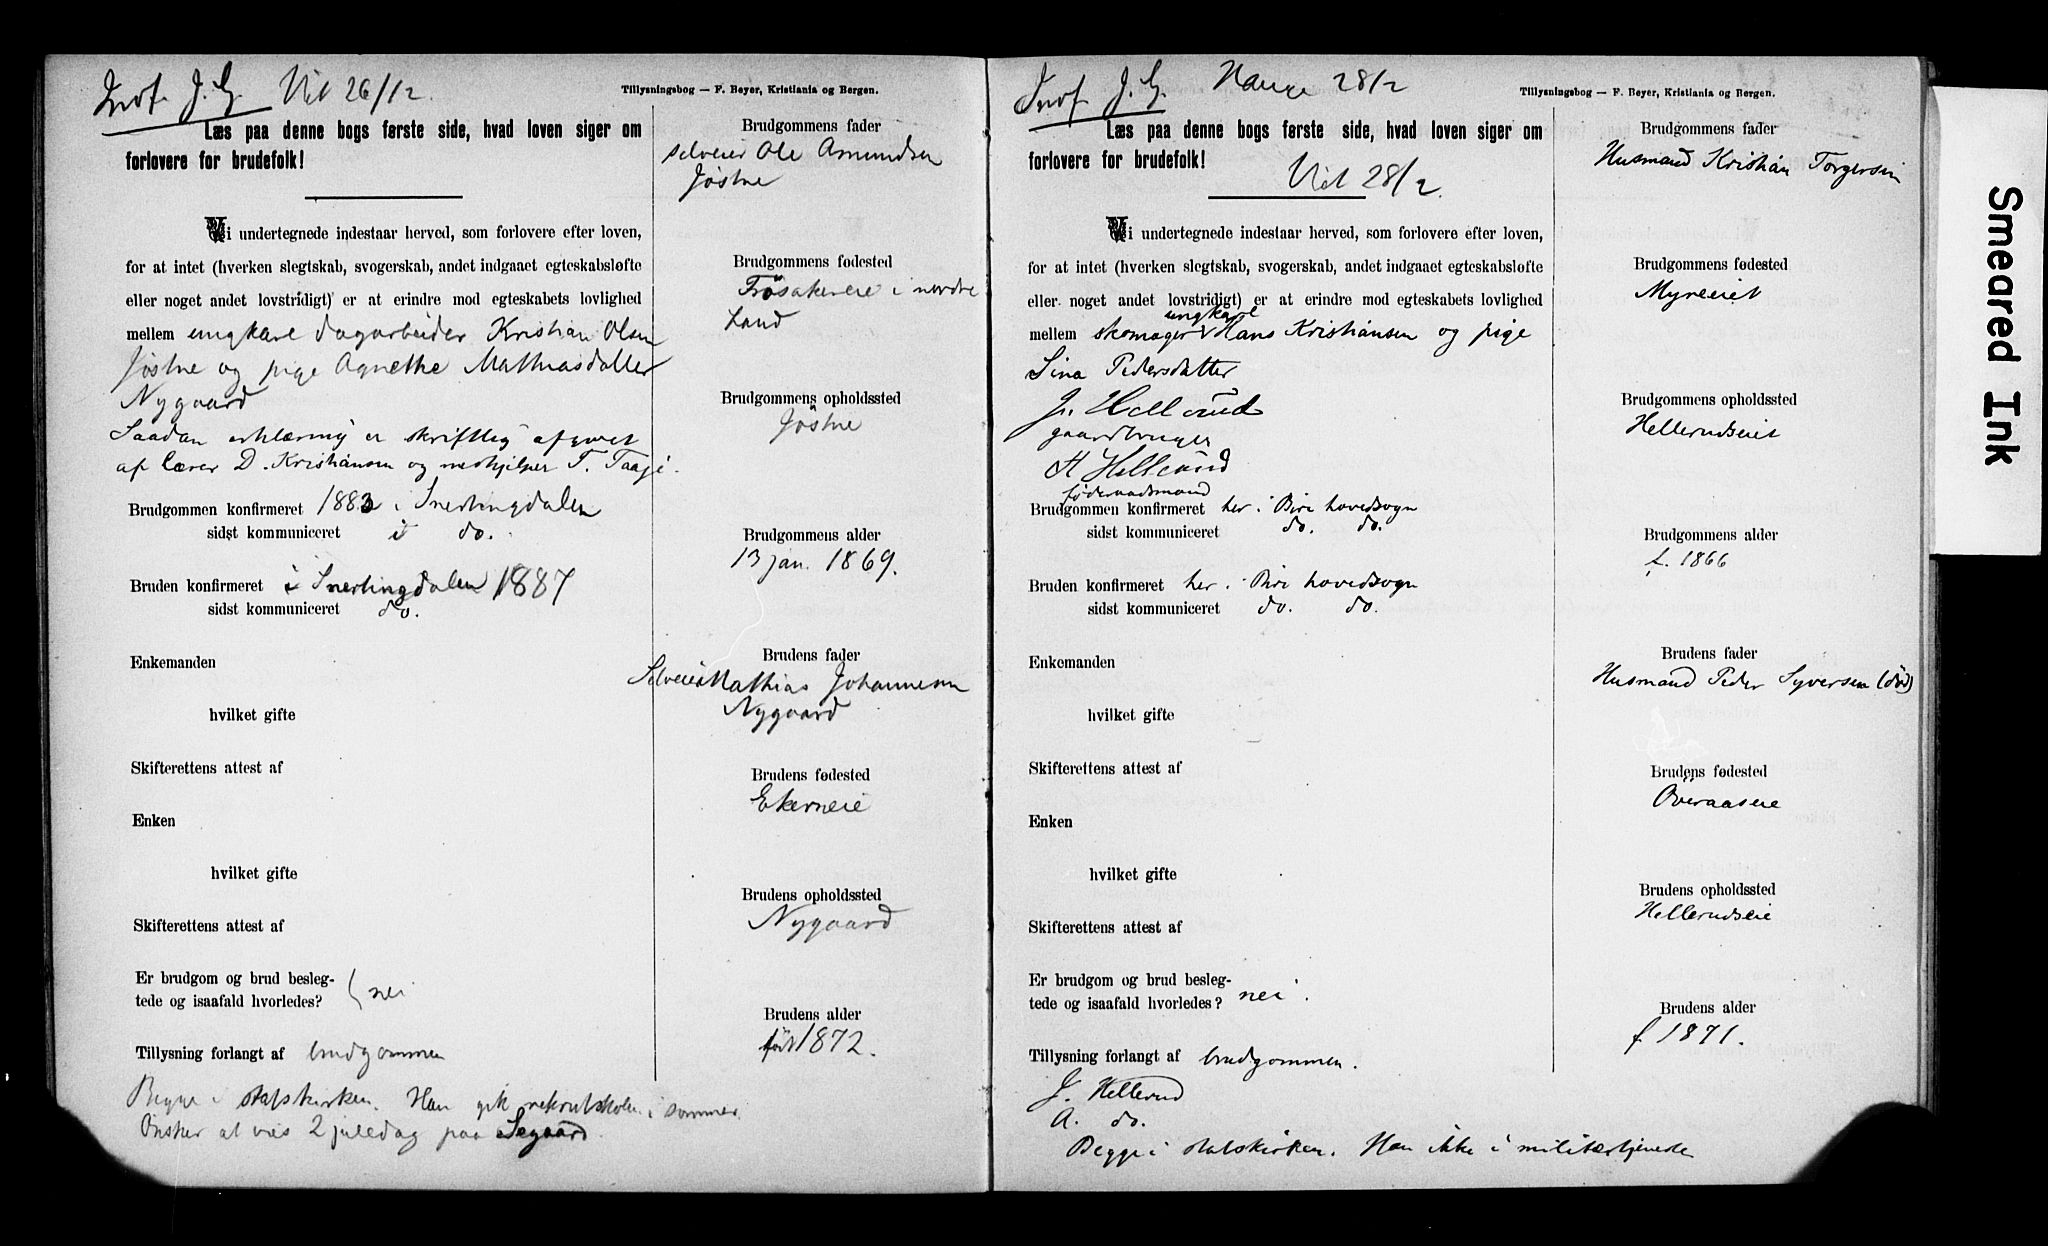 Indf. J. G. Viet 26/12.
Tillysningsbog — F. Beyer, Kristiania og Bergen.
Læs paa denne bogs første side, hvad loven siger om
forlovere for brudefolk!
Vi undertegnede indestaar herved, som forlovere efter loven,
for at intet (hverken slegtskab, svogerskab, andet indgaaet egteskabsløfte
eller noget andet lovstridigt) er at erindre mod egteskabets lovlighed
mellem ungkarl dagarbeider Kristian Olsen
Jøstne og pige Agnethe Mathiasdatter
Nygaard
Saadan erklæring er skriftlig afgivet
af lærer D. Kristiansen og medhjelper T. Taage.
Brudgommen konfirmeret 1883 i Snertingdalen
sidst kommuniceret i do.
Bruden konfirmeret i Snertingdalen 1887
sidst kommuniceret do.
Enkemanden
hvilket gifte
Skifterettens attest af
Enken
hvilket gifte
Skifterettens attest af
Er brudgom og brud besleg-
tede og isaafald hvorledes? nei
Tillysning forlangt af brudgommen
Begge i statskirken. Han gik rekrutskolen i sommer.
Ønsker at vies 2 juledag paa Segaard.
Brudgommens fader
selveier Ole Amundsen
Jøstne
Brudgommens fødested
Frøsakereie i nordre
Land
Brudgommens opholdssted
Jøstne
Brudgommens alder
13 jan. 1869.
Brudens fader
Selveier Mathias Johannesen
Nygaard
Brudens fødested
Ekerneie
Brudens opholdssted
Nygaard
Brudens alder
født 1872.
Indf. J. G. Hauge 28/2
Tillysningsbog — F. Beyer, Kristiania og Bergen.
Læs paa denne bogs første side, hvad loven siger om
forlovere for brudefolk!
Viet 28/2.
Vi undertegnede indestaar herved, som forlovere efter loven,
for at intet (hverken slegtskab, svogerskab, andet indgaaet egteskabsløfte
eller noget andet lovstridigt) er at erindre mod egteskabets lovlighed
ungkarl
mellem skomager Hans Kristiansen og pige
Sina Pedersdatter
J. Hellerud
gaardbruger
A Hellerud
føderaadsmand
Brudgommen konfirmeret her i Biri hovedsogn
sidst kommuniceret do. do.
Bruden konfirmeret her i Biri hovedsogn
sidst kommuniceret do. do.
Enkemanden
hvilket gifte
Skifterettens attest af
Enken
hvilket gifte
Skifterettens attest af
Er brudgom og brud besleg-
tede og isaafald hvorledes? nei.
Tillysning forlangt af brudgommen.
J. Hellerud
A. do.
Begge i statskirken. Han ikke i militærtjeneste
Brudgommens fader
Husmand Kristian Torgersen
Brudgommens fødested
Myreeiet
Brudgommens opholdssted
Hellerudseiet
Brudgommens alder
f. 1866
Brudens fader
Husmand Peder Syversen (død)
Brudens fødested
Överaaseie
Brudens opholdssted
Hellerudseie
Brudens alder
f 1871.
Smeared Ink